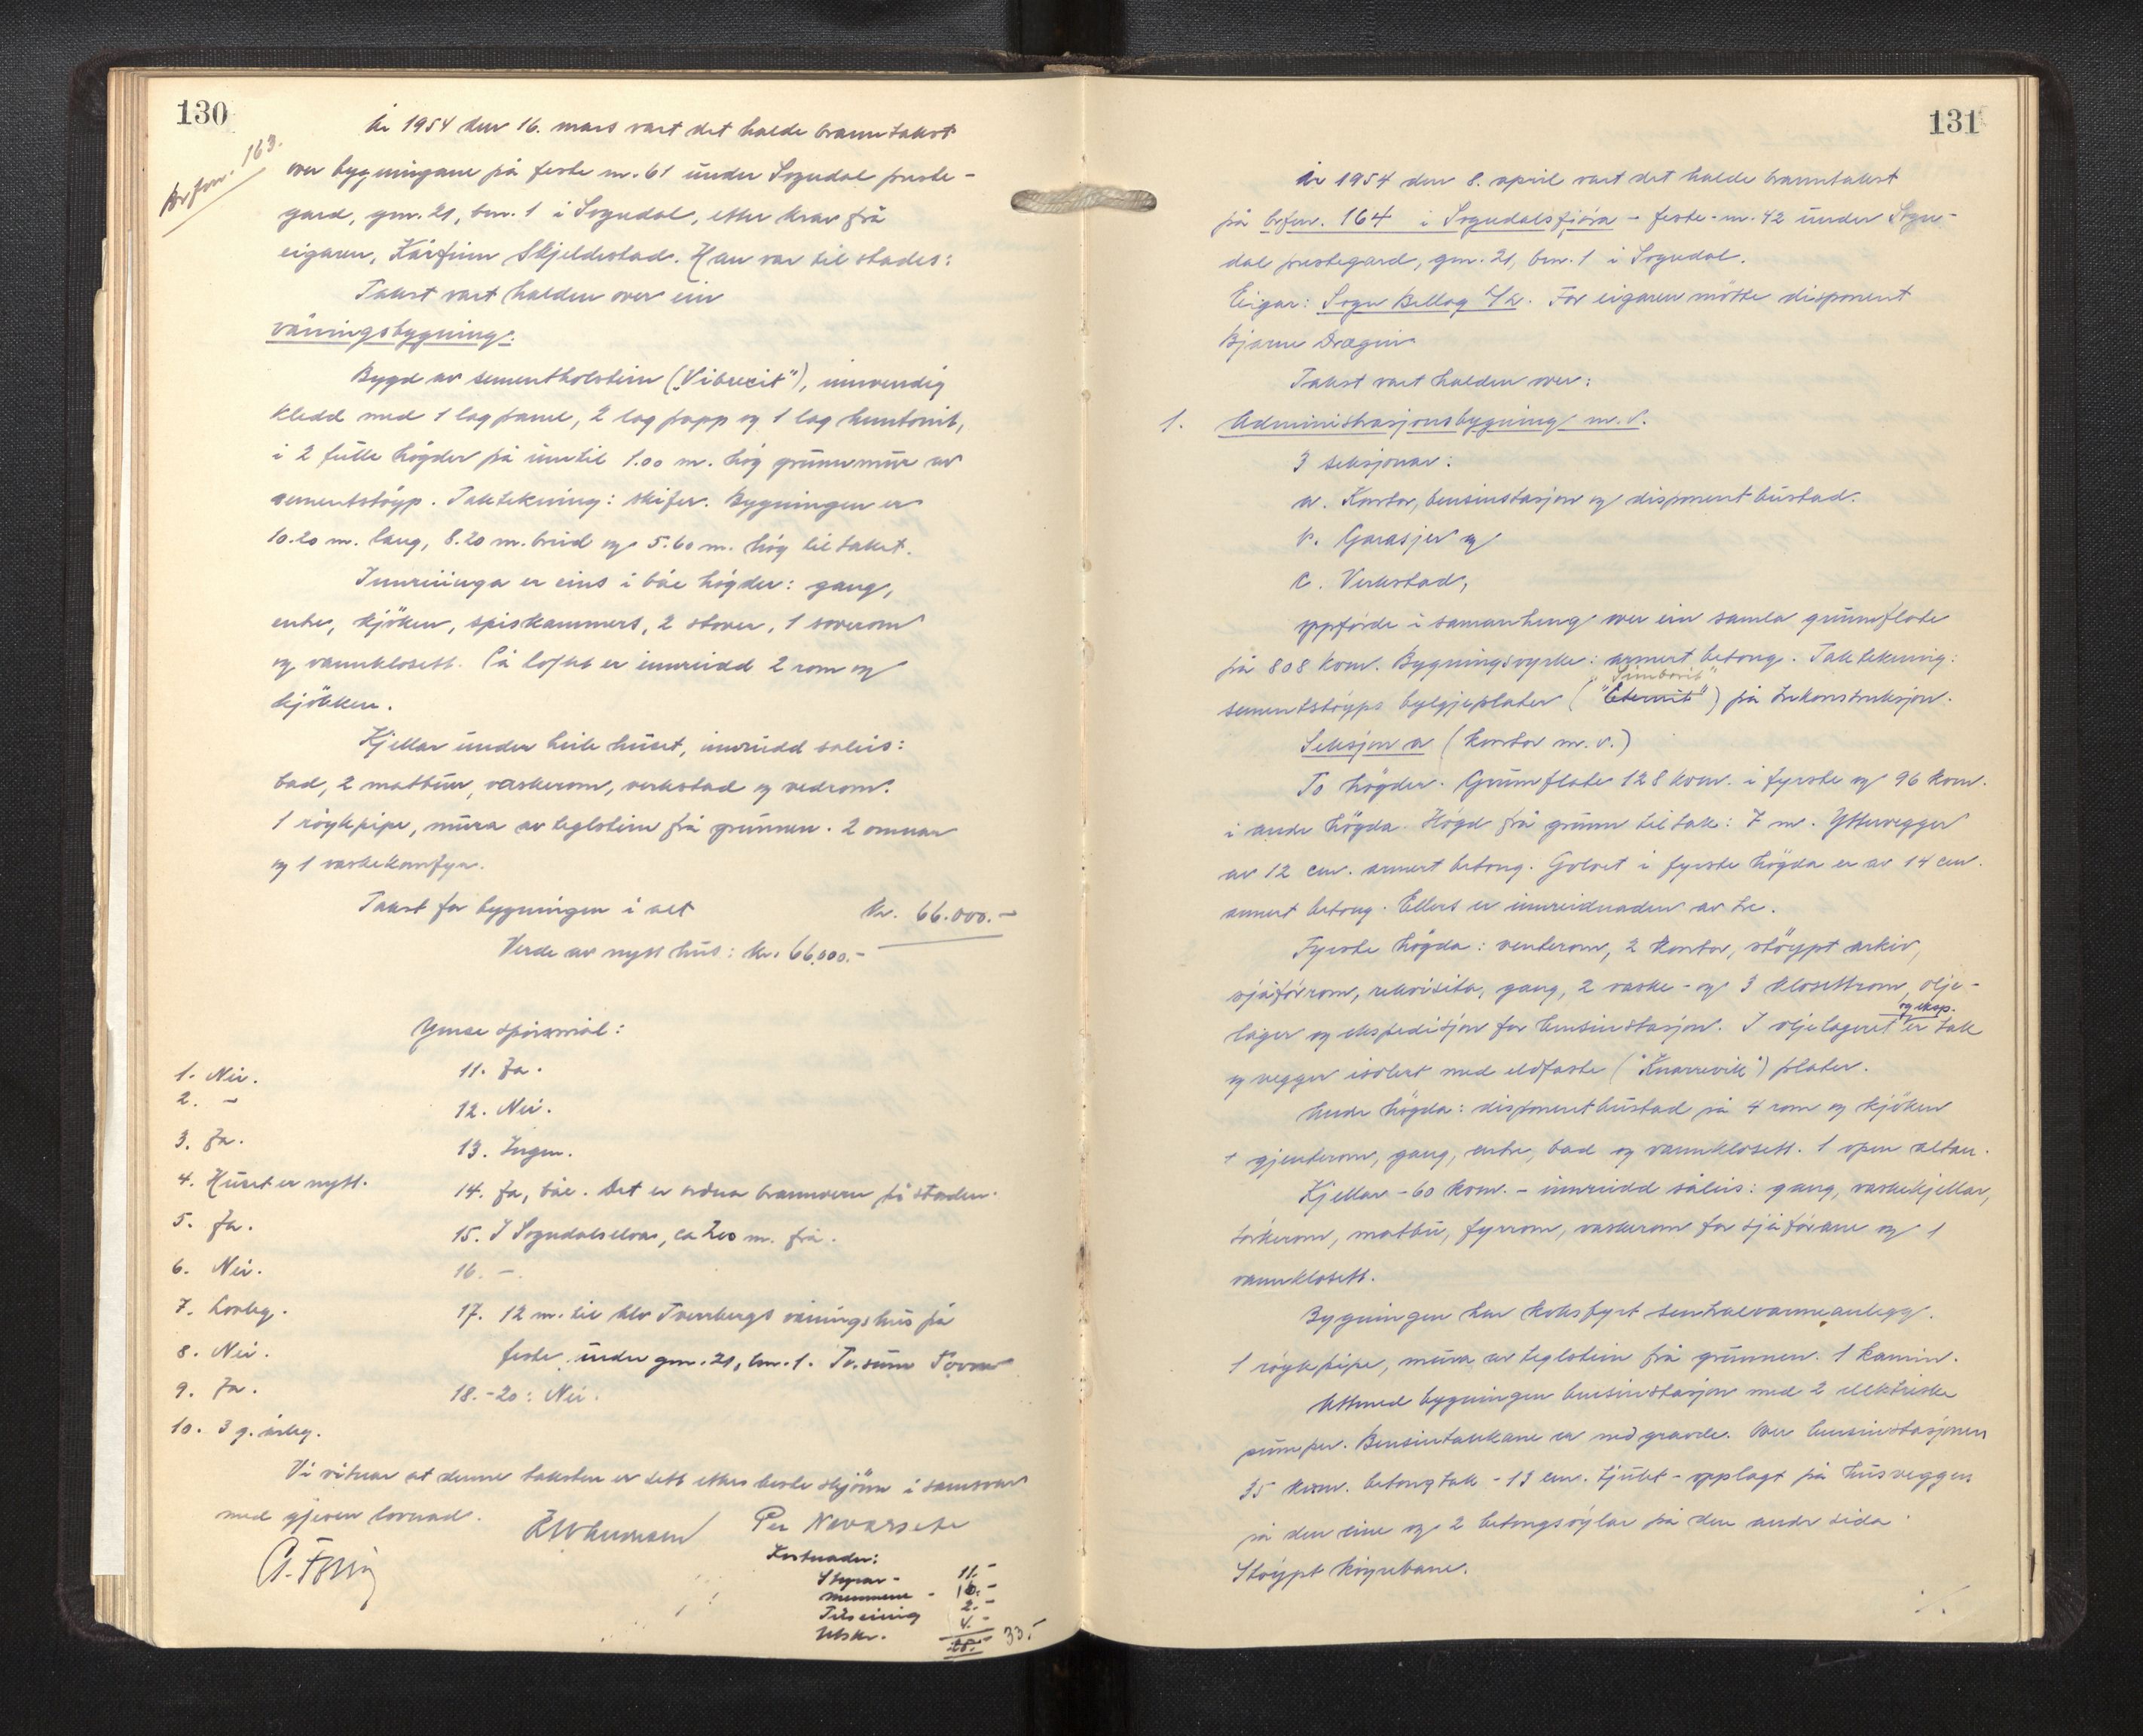 130
brfnr. 163.
År 1954 den 16. mars vart det halde branntakst
over bygningane på feste nr. 61 under Sogndal preste-
gard, gnr. 21, bnr. 1 i Sogndal, etter krav frå
eigaren, Kårfinn Skjeldestad. Han var til stades:
Takst vart halden over ein
våningsbygning.
Bygd av sementholstein ("Vibrecit"), innvendig
kledd med 1 lag panel, 2 lag papp og 1 lag huntonit,
i 2 fulle högder på inntil 1.00 m. hög grunnmur av
sementstöyp. Taktekning: skifer. Bygningen er
10.20 m. lang, 8.20 m. breid og 5.60 m. hög til taket.
Innreiinga er eins i båe högder: gang,
entre, kjöken, spiskammers, 2 stover, 1 soverom
og vannklosett. På loftet er innreidd 2 rom og
kjökken.
Kjellar under heile huset, innreidd soleis:
bad, 2 matbuer, vaskerom, verkstad og vedrom.
1 röykpipe, mura av teglstein frå grunnen. 2 omnar
og 1 vaskekomfyr.
Takst for bygningen i alt Kr. 66.000.-
Verde av nytt hus: Kr. 66.000.-
Ymse spörsmål:
1. Nei.
2. -
3. Ja.
4. Huset er nytt.
5. Ja.
6. Nei.
7. Lovleg.
8. Nei.
9. Ja.
10. 3 g. årleg.
11. Ja.
12. Nei.
13. Ingen.
14. Ja, båe. Det er ordna brannvern på staden.
15. I Sogndalselva, ca 200 m. frå.
16. -
17. 12 m. til Tverrbergs våningshus på
feste under gnr. 21, bnr. 1.
18.-20: Nei.
Vi vitnar at denne taksten er sett etter beste skjönn i samsvar
med gjeven lovnad.
Per Navarsete
Kostnader:
Styrar - 11.-
mennene - 16.-
Tilseiing 2.-
Utskr. 4.-
33.-
131
År 1954 den 8. april vart det halde branntakst
på brfnr. 164 i Sogndalsfjöra - feste-nr. 42 under Sogn-
dal prestegard, gnr. 21, bnr. 1 i Sogndal.
Eigar: Sogn Billag L/L. For eigaren mötte disponent
Bjarne Drægni.
Takst vart halden over:
1. Administrasjonsbygning m.v.
3 seksjonar:
a. Kontor, bensinstasjon og disponentbustad.
b. Garasjer og
c. Verkstad,
oppförde i samanheng over ein samla grunnflate
på 808 kvm. Bygningsvyrke: armert betong. Taktekning:
sementstöypt bylgjeplater ("Eternit") på trekonstruksjon.
Seksjon a (kontor m.v.)
To högder. Grunnflate 128 kvm. i fyrste og 96 kvm.
i andre högda. Högd frå grunn til tak: 7 m. Yttervegger
av 12 cm. armert betong. Golvet i fyrste högda er av 14 cm.
armert betong. Ellers er innreidnaden av tre.
Fyrste högda: venterom, 2 kontor, stöypt arkiv,
sjåförrom, rekvisita, gang, 2 vaske- og 3 klosettrom, olje-
lager og ekspedisjon for bensinstasjon. I oljelageret og eksp. er tak
og vegger isolert med eldfaste ("Knarrevik") plater.
Andre högda: disponentbustad på 4 rom og kjöken
1 gjenterom, gang, entre, bad og vannklosett. 1 open altan.
Kjellar - 60 kvm. - innreidd såleis: gang, vaskekjellar,
törkerom, matbu, fyrrom, vaskerom for sjåförane og 1
vannklosett.
Bygningen har koksfyrt sentralvarmeanlegg.
1 röykpipe, mura av teglstein frå grunnen. 1 kamin.
Attmed bygningen bensinstasjon med 2 elektriske
pumper. Bensintankane er nedgravde. Over bensinstasjonen
35 kvm. betongtak - 13 cm. tjukt - opplagt på husveggen
på den eine og 2 betongsöylar på den andre sida.
Stöypt köyrebane.
./.